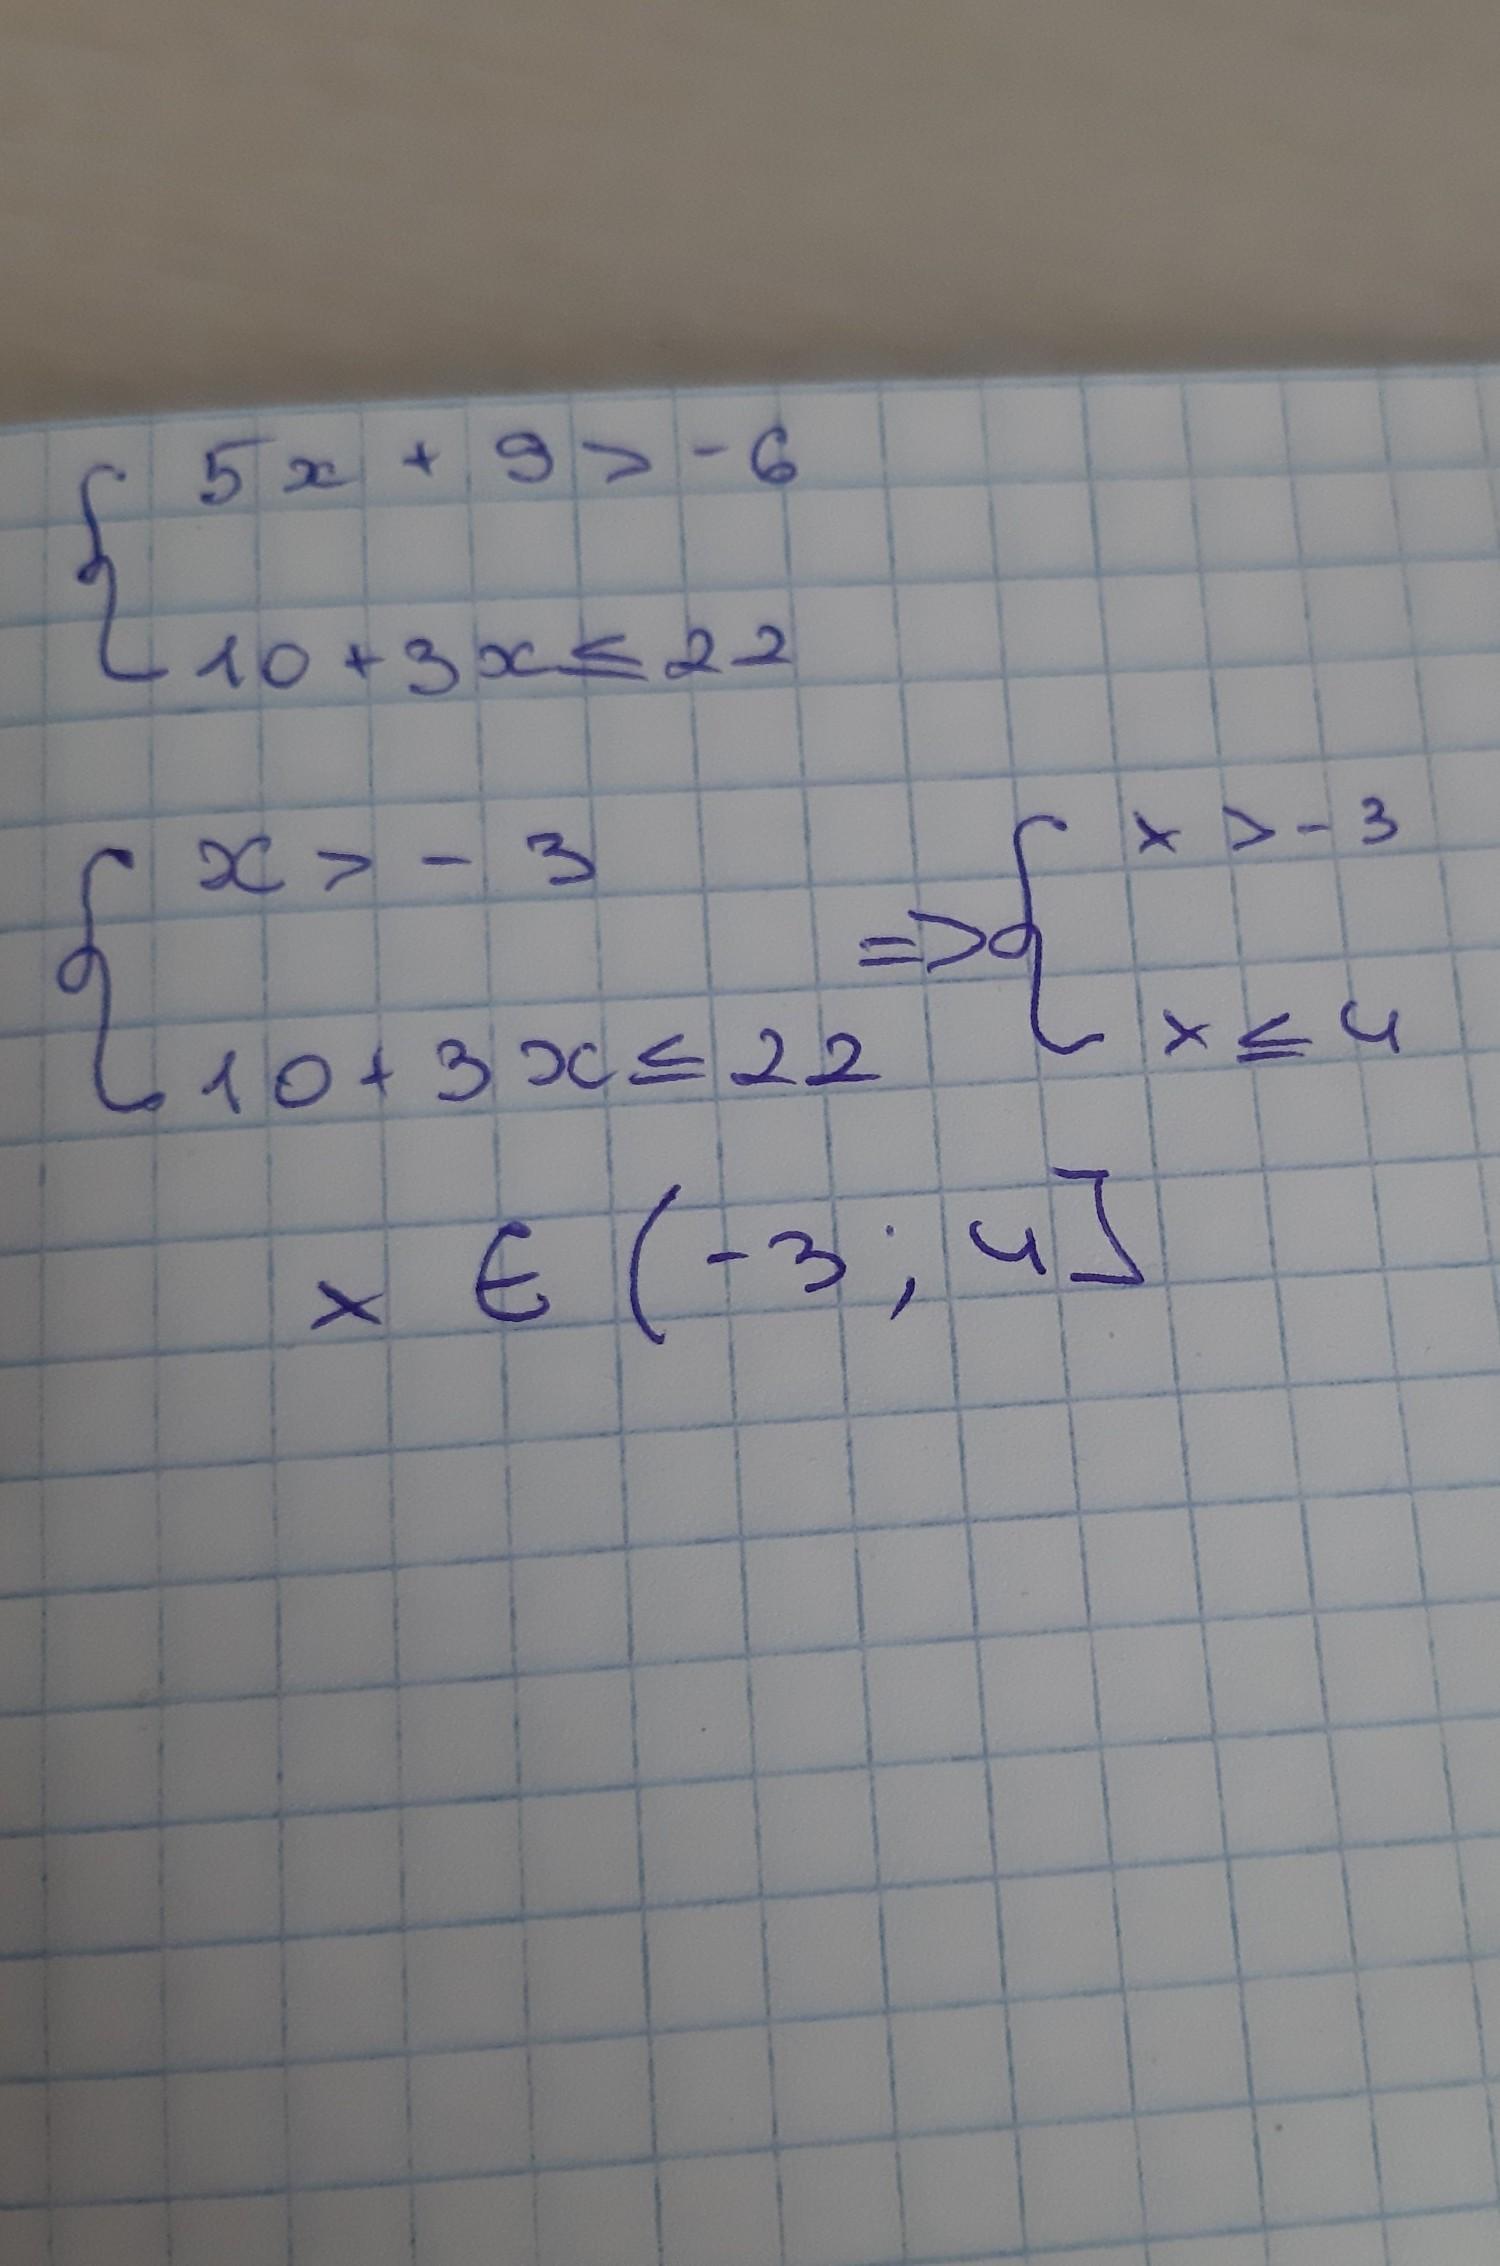 { 5x + 9 > -6
10 + 3x ≤ 22
{ x > - 3
10 + 3x ≤ 22
=> { x > - 3
x ≤ 4
x ∈ (-3; 4]